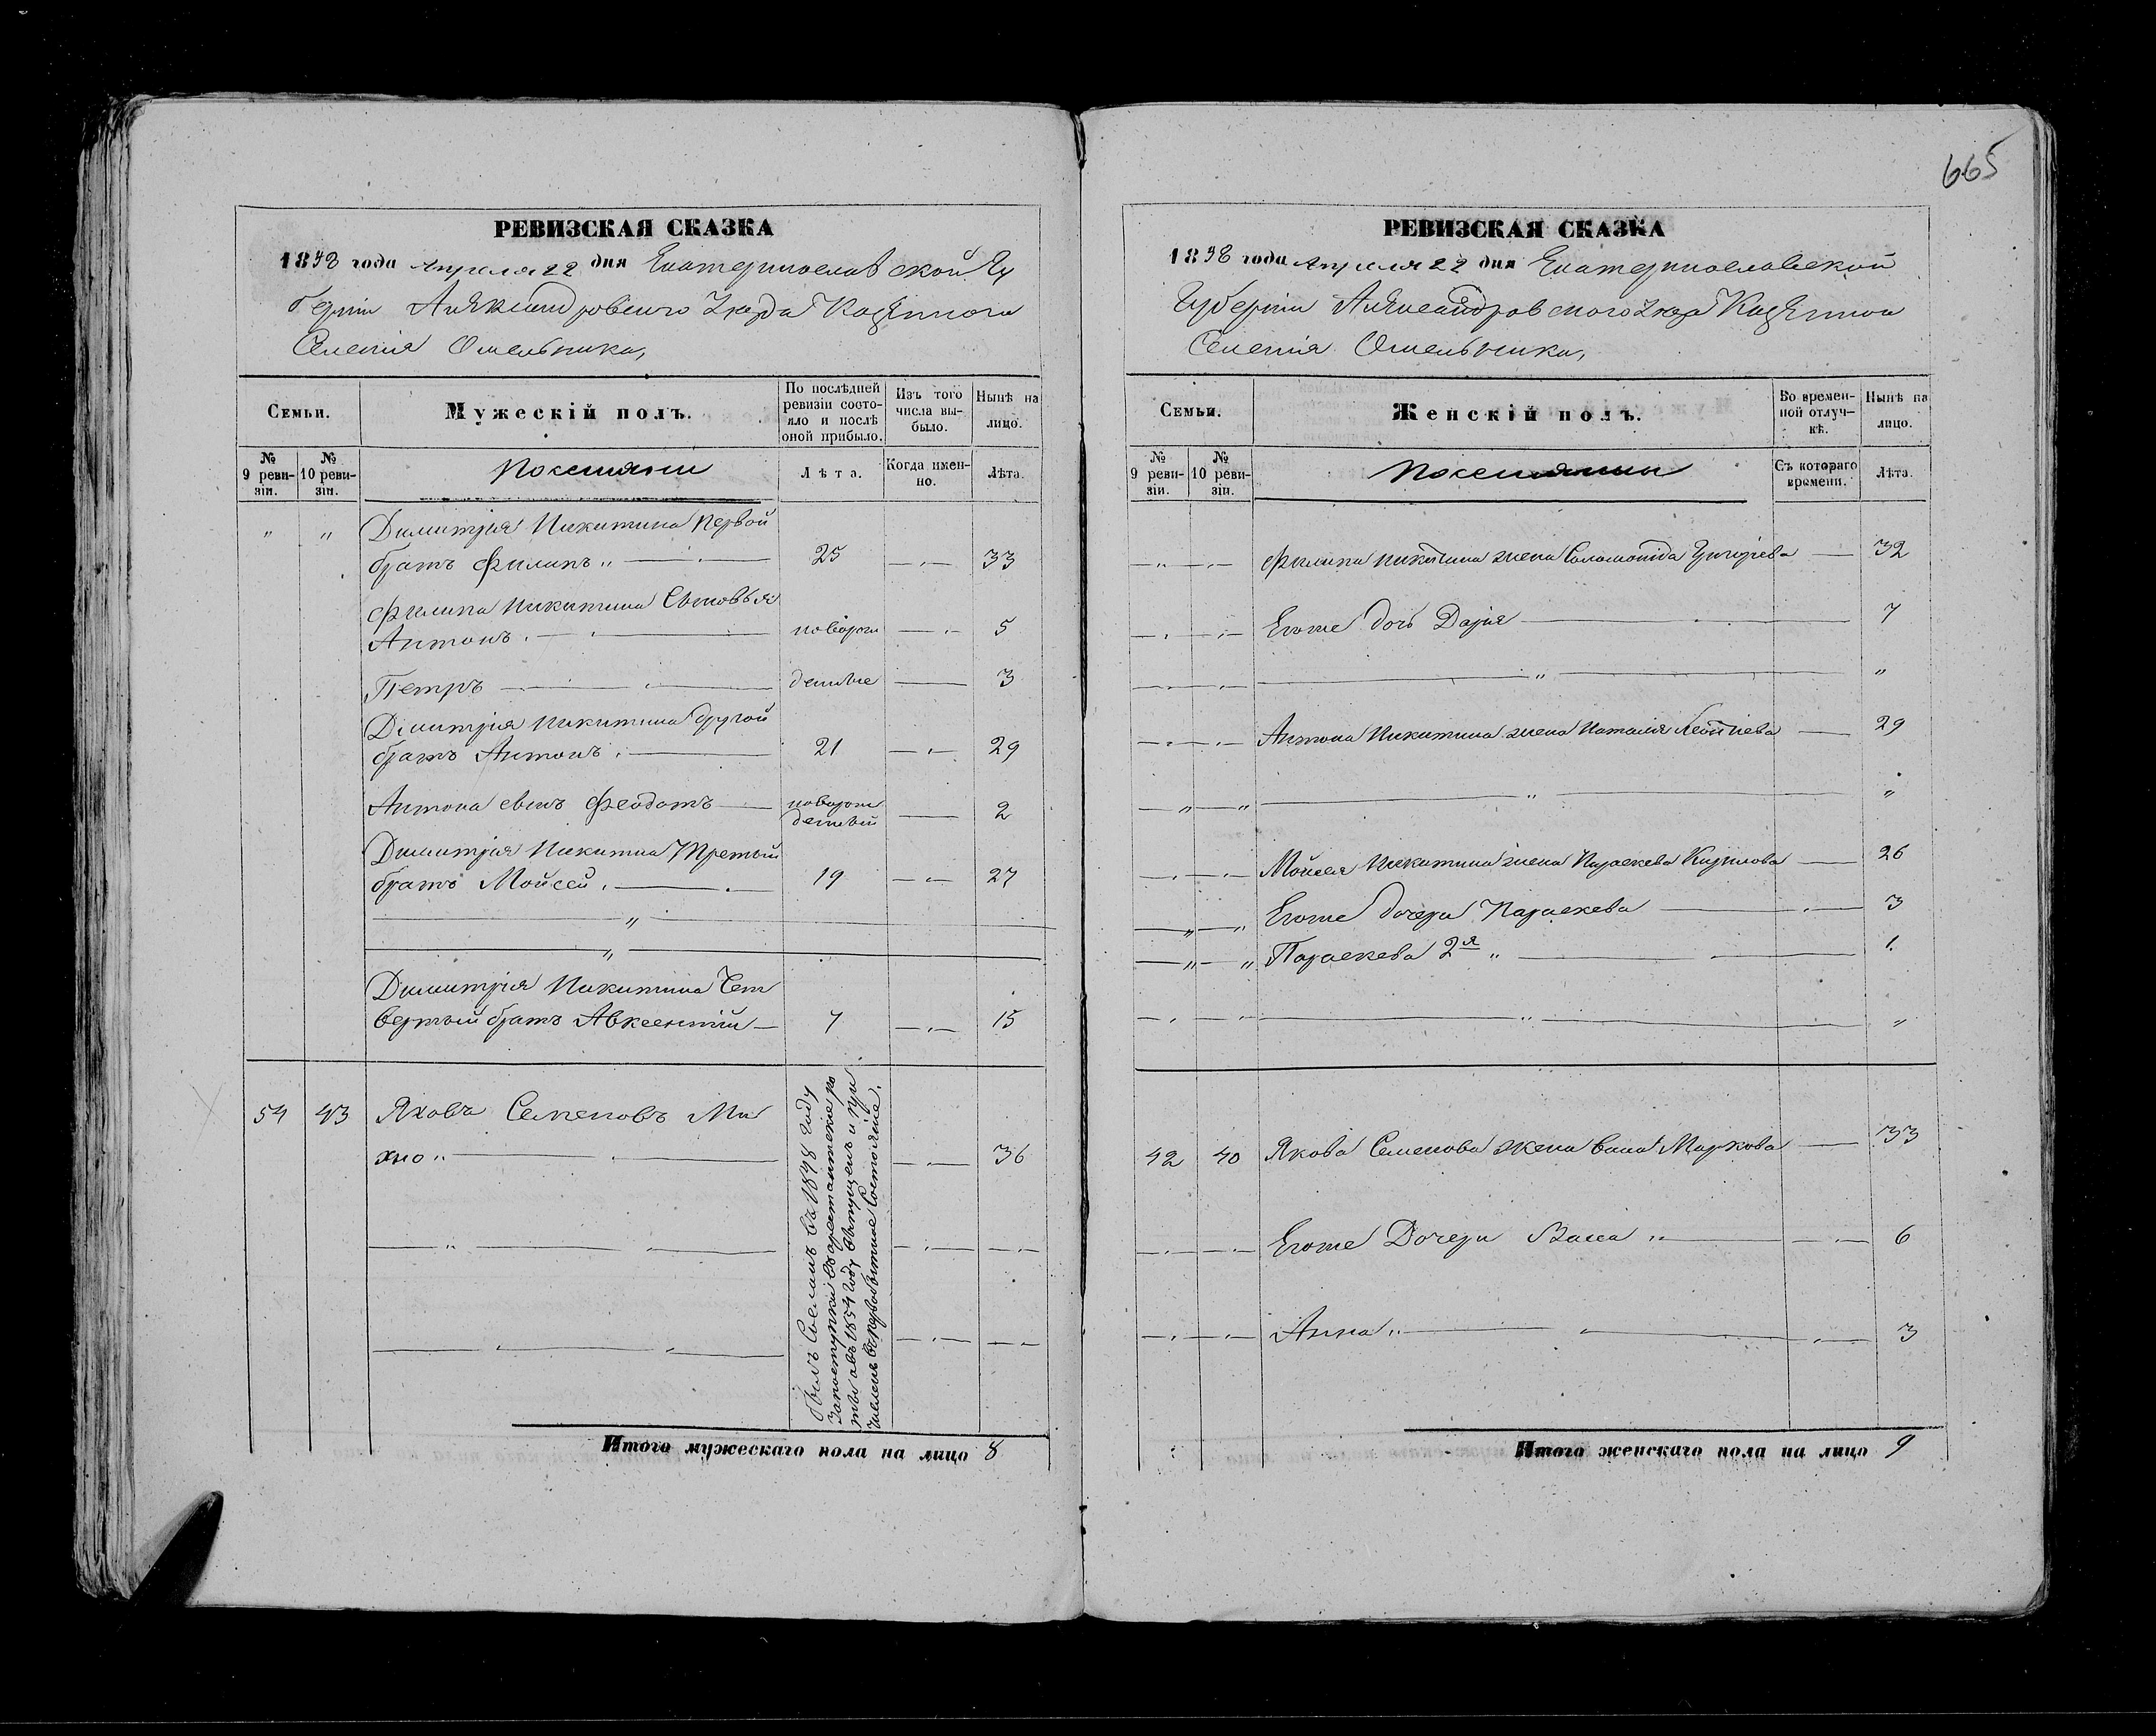 665
РЕВИЗСКАЯ СКАЗКА
1858 года Апреля 22 дня Екатеринославской Гу
берніи Александровского Уезда Казенного
Селенія Омельника,
Семьи.
Мужескій полъ.
По послѣдней ревизіи состояло и послѣ оной прибыло.
Изъ того числа выбыло.
Нынѣ на лицо.
№ 9 реви-зіи.
№ 10 реви-зіи.
Поселяни
Лѣта.
Когда имен-но.
Лѣта.
" " Димитрія Никитина первой
братъ Филипъ " 25 33
Филипа Никитина Сыновья
Антонъ новорож 5
Петръ денные 3
Димитрія Никитина другой
братъ Антонъ 21 29
Антона сынъ Феодотъ новорож денный 2
Димитрія Никитина Третьій
братъ Мойсей 19 27
Димитрія Никитина Чет
вертый братъ Авксентій 7 15
54 43 Яковъ Семеновъ Ми
хно " 36
былъ Сосланъ въ 1848 году
за проступки въ арестантские ро
ты а въ 1854 году выпущенъ и при
численъ въ первобытное Состояние.
Итого мужескаго пола на лицо 8
РЕВИЗСКАЯ СКАЗКА
1858 года Апреля 22 дня Екатеринославской
Губерніи Александровского Уезда Казенного
Селенія Омельника,
Семьи.
Женскій полъ.
Во времен-ной отлуч-кѣ.
Нынѣ на лицо.
№ 9 реви-зіи.
№ 10 реви-зіи.
Поселянки
Съ котораго времени.
Лѣта.
Филипа Никитина жена Соломонида Григорьева 32
Егоже дочь Дарія 7
"
Антона Никитина жена Наталія Леонтіева 29
"
Мойсея Никитина жена Параскева Кирилова 26
Егоже дочери Параскева 3
Параскева 2я " 1
"
42 40 Якова Семенова жена Васа Маркова 33
Егоже Дочери Васса " 6
Анна " 3
Итого женскаго пола на лицо 9